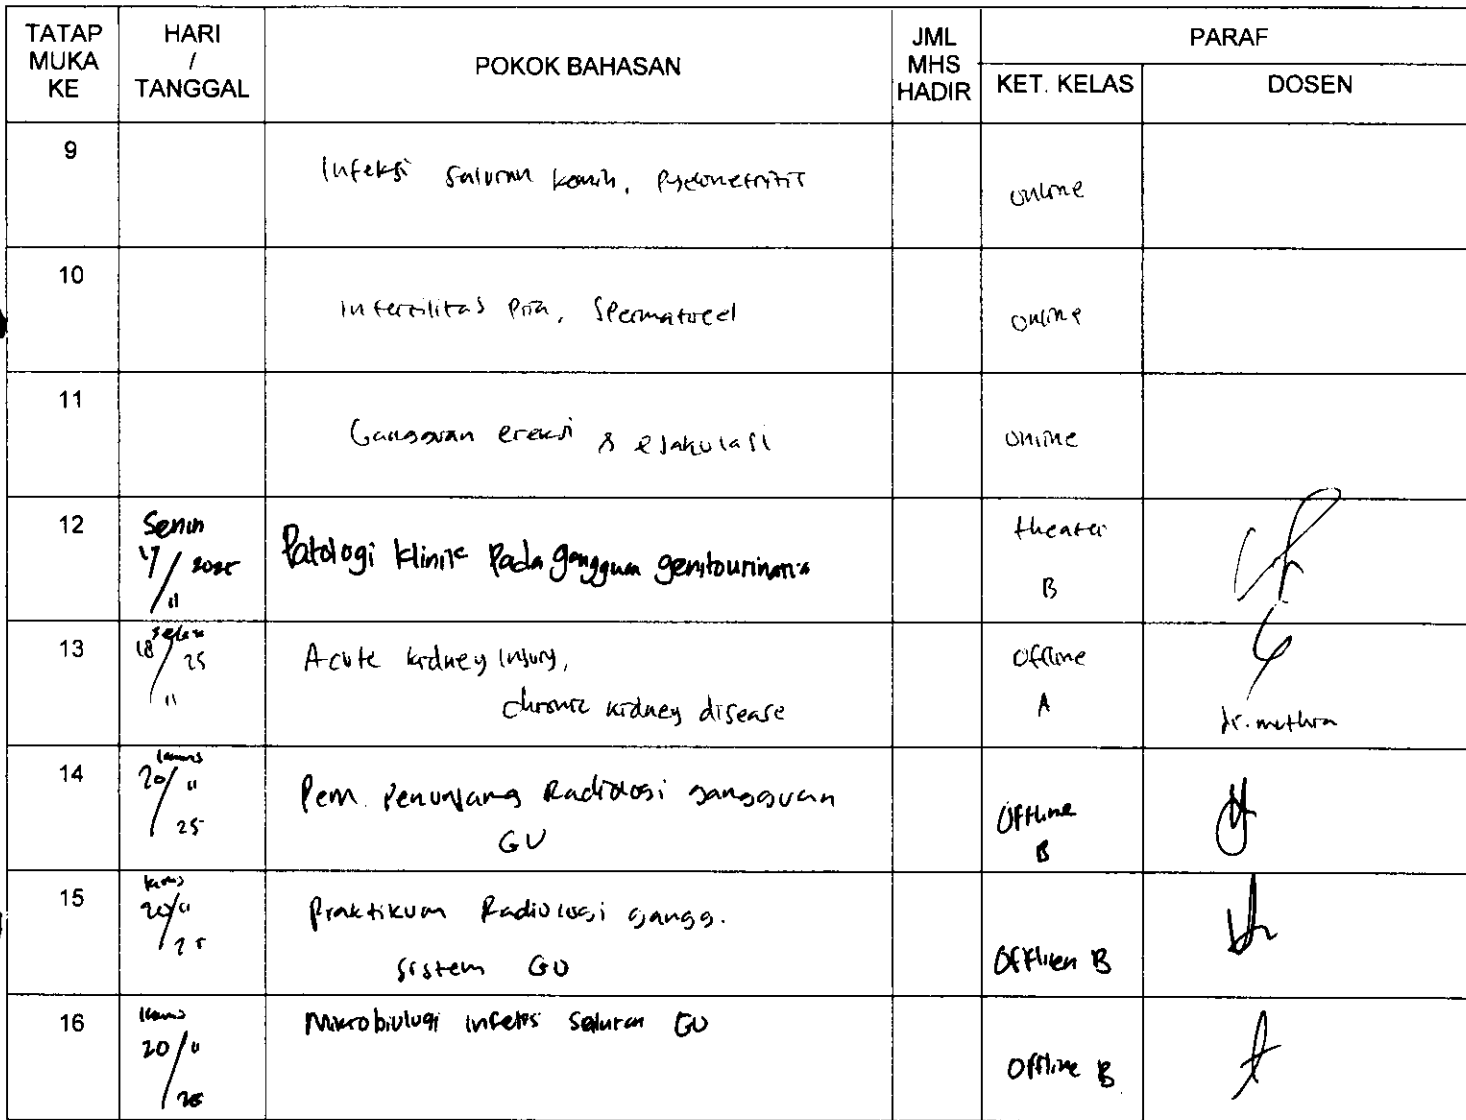 TATAP MUKA KE
HARI / TANGGAL
POKOK BAHASAN
JML MHS HADIR
PARAF
KET. KELAS
DOSEN
9
Infeksi saluran kemih,
online
10
Infertilitas Pria, Spermatocel
online
11
Gangguan ereksi & ejakulasi
online
12
Senin
17/11 2025
Patologi Klinik Pada gangguan genitourinaria
theater
B
13
Selasa
18/11 25
Acute kidney Injury,
chronic kidney disease
Offline
A
dr.
14
kamis
20/11 25
Pem. Penunjang Radiologi gangguan
GU
Offline
B
15
kamis
20/11 25
Praktikum Radiologi gangg.
sistem GU
Offlien B
16
kamis
20/11
Mikrobiologi infeksi Saluran GU
Offline B